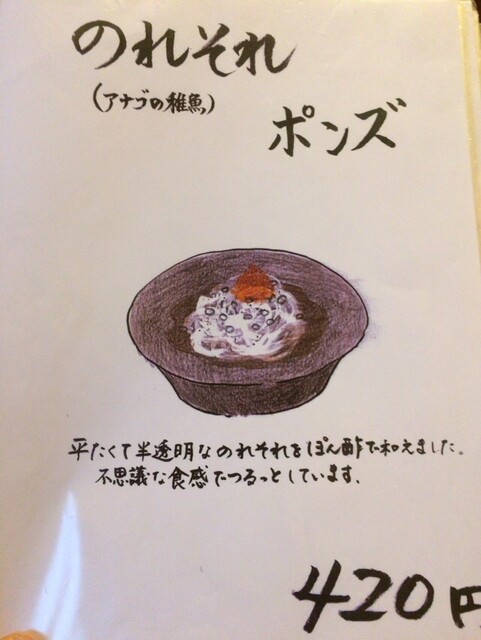 のれそれ
(アナゴの稚魚)
ポンズ
平たくて半透明なのれそれをぽん酢で和えました。
不思議な食感でつるっとしています、
420円